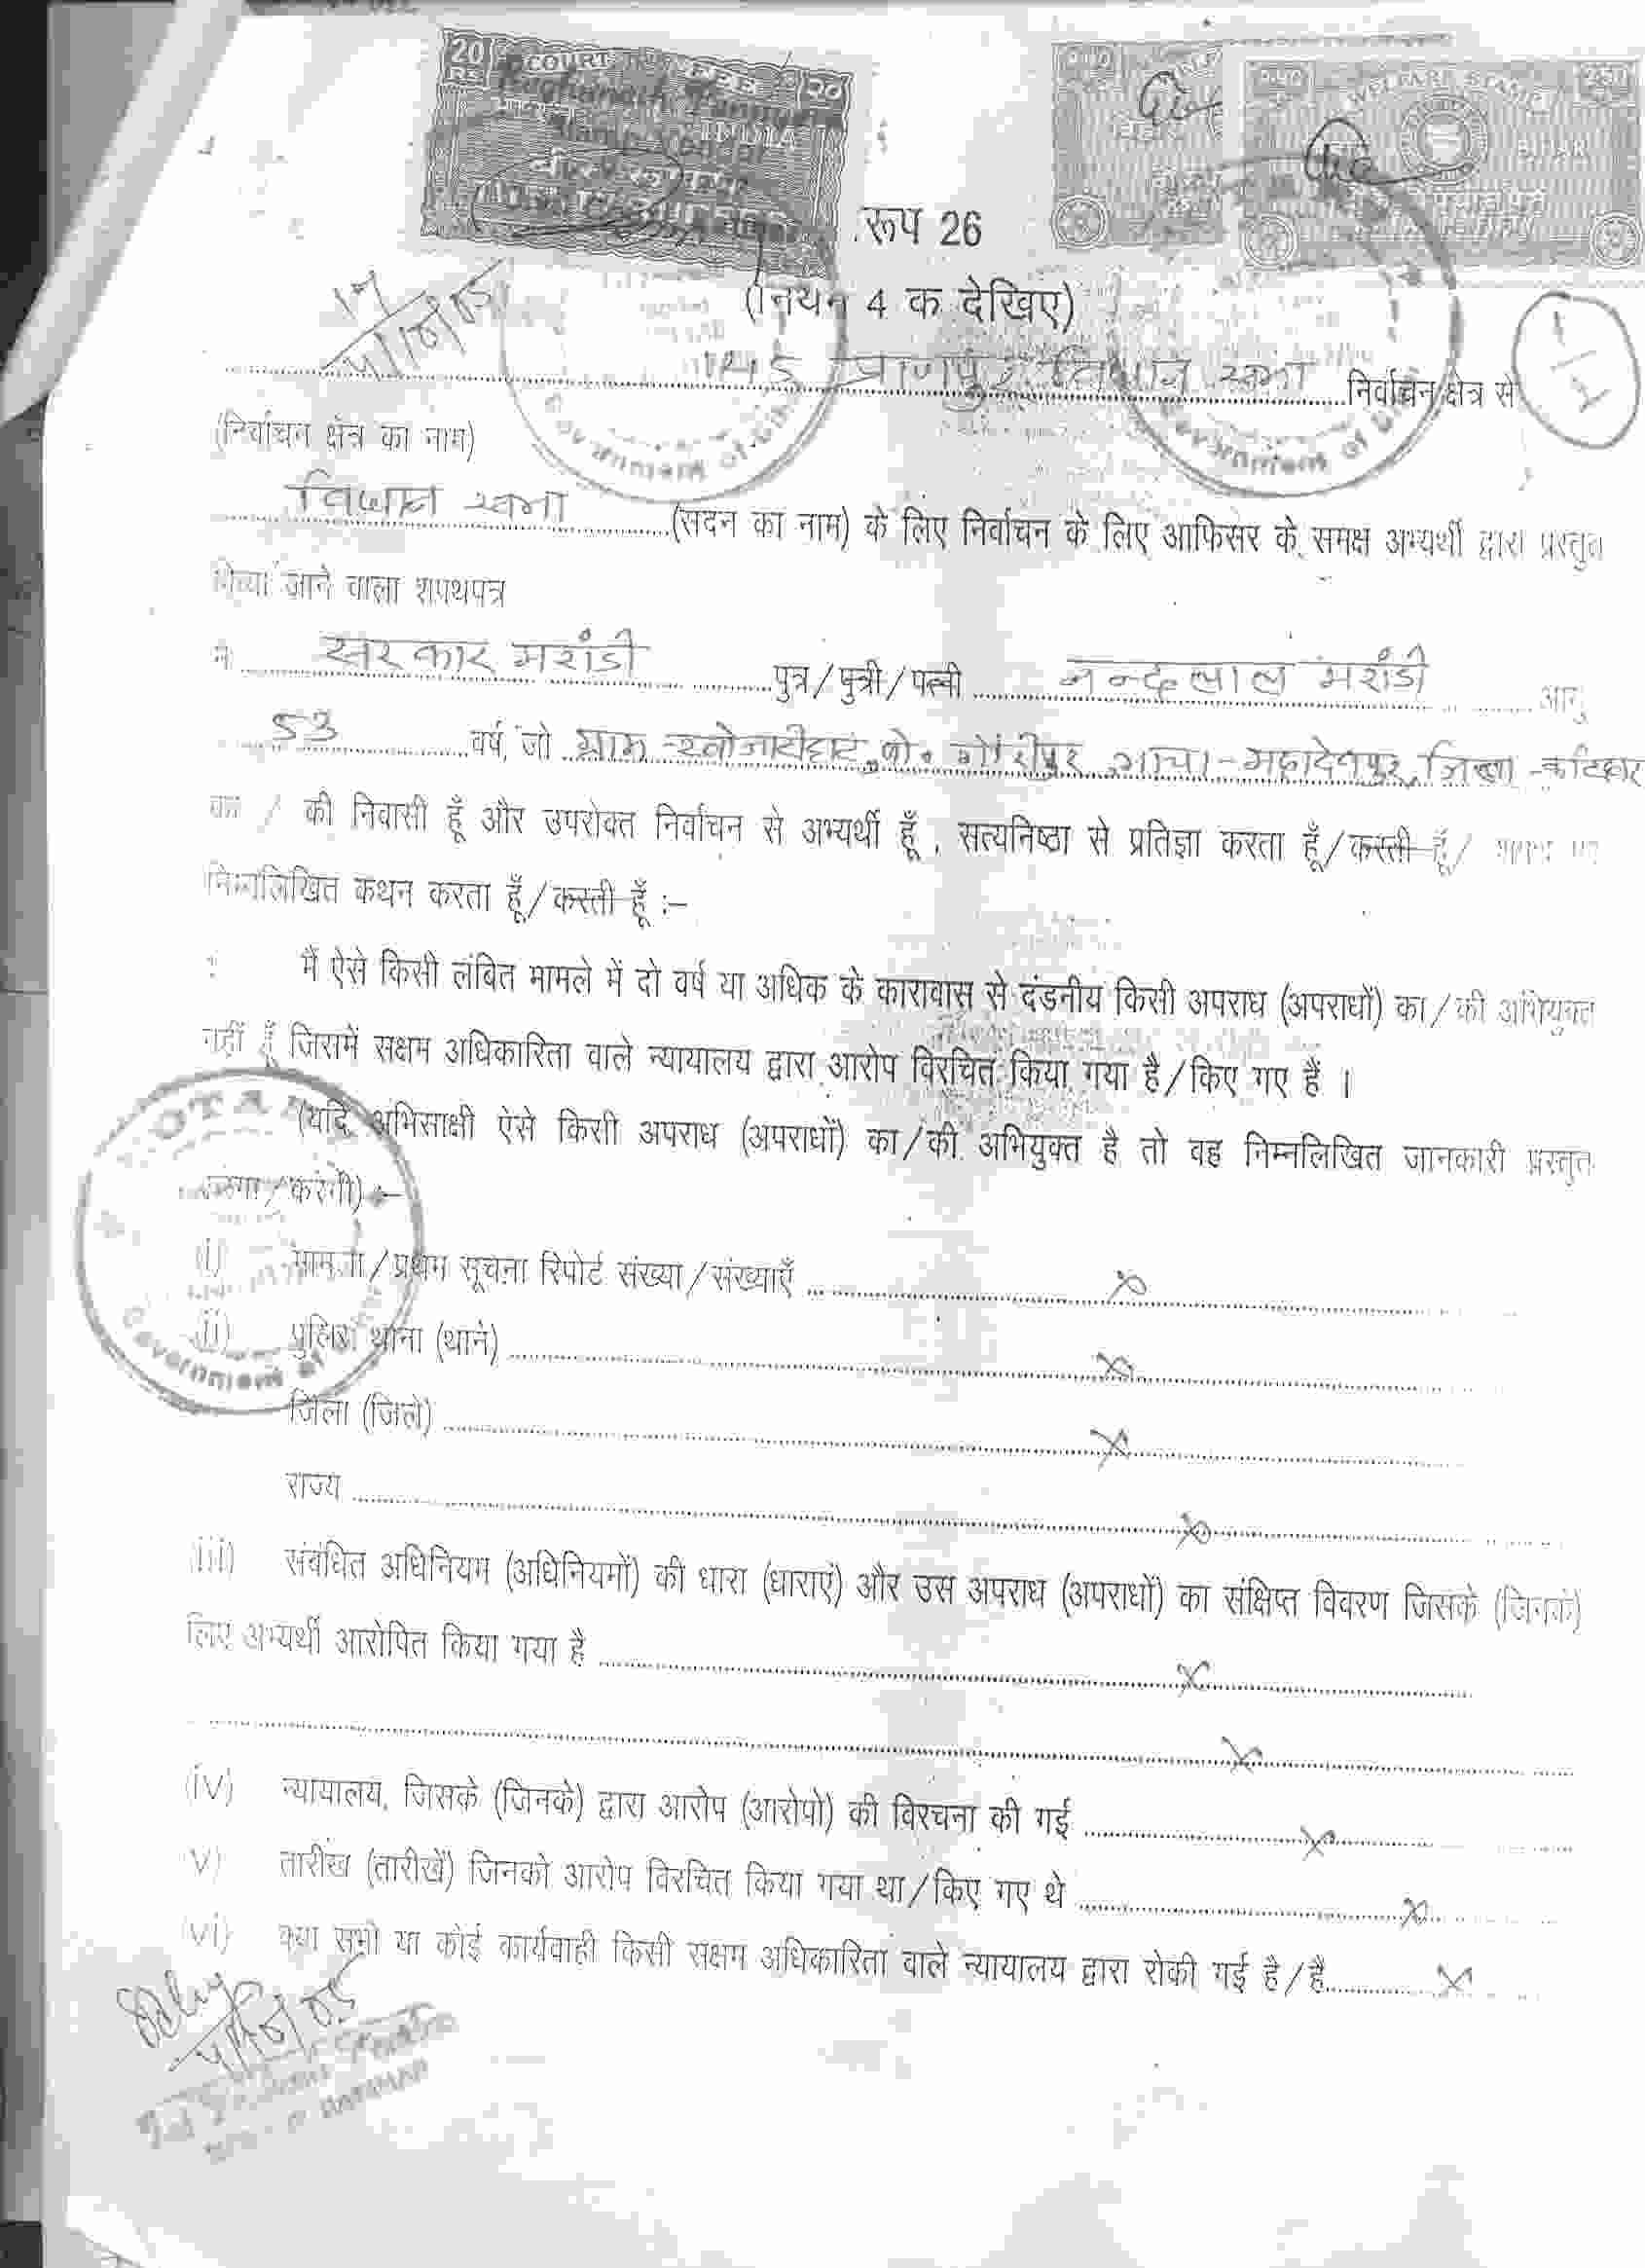 20 COURT FEE २०
Rs. INDIA
बीस रुपया
WELFARE STAMP 250
BIHAR
रूप 26
(नियम 4 क देखिए)
145 प्राणपुर विधान सभा निर्वाचन क्षेत्र से
(निर्वाचन क्षेत्र का नाम)
विधान सभा (सदन का नाम) के लिए निर्वाचन के लिए आफिसर के समक्ष अभ्यर्थी द्वारा प्रस्तुत
किया जाने वाला शपथपत्र
मैं सरकार मरांडी पुत्र/पुत्री/पत्नी नन्दलाल मरांडी आयु
53 वर्ष, जो ग्राम - खोजाटीहाट, पो. गोरीपुर, - महादेवपुर, जिला - कटिहार
का / की निवासी हूँ और उपरोक्त निर्वाचन से अभ्यर्थी हूँ , सत्यनिष्ठा से प्रतिज्ञा करता हूँ/करती हूँ/ शपथ पर
निम्नलिखित कथन करता हूँ/करती हूँ :-
मैं ऐसे किसी लंबित मामले में दो वर्ष या अधिक के कारावास से दंडनीय किसी अपराध (अपराधों) का/की अभियुक्त
नहीं हूँ जिसमें सक्षम अधिकारिता वाले न्यायालय द्वारा आरोप विरचित किया गया है/किए गए हैं ।
(यदि अभिसाक्षी ऐसे किसी अपराध (अपराधों) का/की अभियुक्त है तो वह निम्नलिखित जानकारी प्रस्तुत
करेगा/करेगी) :-
(i) मामला/प्रथम सूचना रिपोर्ट संख्या/संख्याएँ X
(ii) पुलिस थाना (थाने) X
जिला (जिले) X
राज्य X
(iii) संबंधित अधिनियम (अधिनियमों) की धारा (धाराएं) और उस अपराध (अपराधों) का संक्षिप्त विवरण जिसके (जिनके)
लिए अभ्यर्थी आरोपित किया गया है X
X
(iv) न्यायालय, जिसके (जिनके) द्वारा आरोप (आरोपो) की विरचना की गई X
(v) तारीख (तारीखें) जिनको आरोप विरचित किया गया था/किए गए थे X
(vi) क्या सभी या कोई कार्यवाही किसी सक्षम अधिकारिता वाले न्यायालय द्वारा रोकी गई है/हैं X
NOTARY
Government of